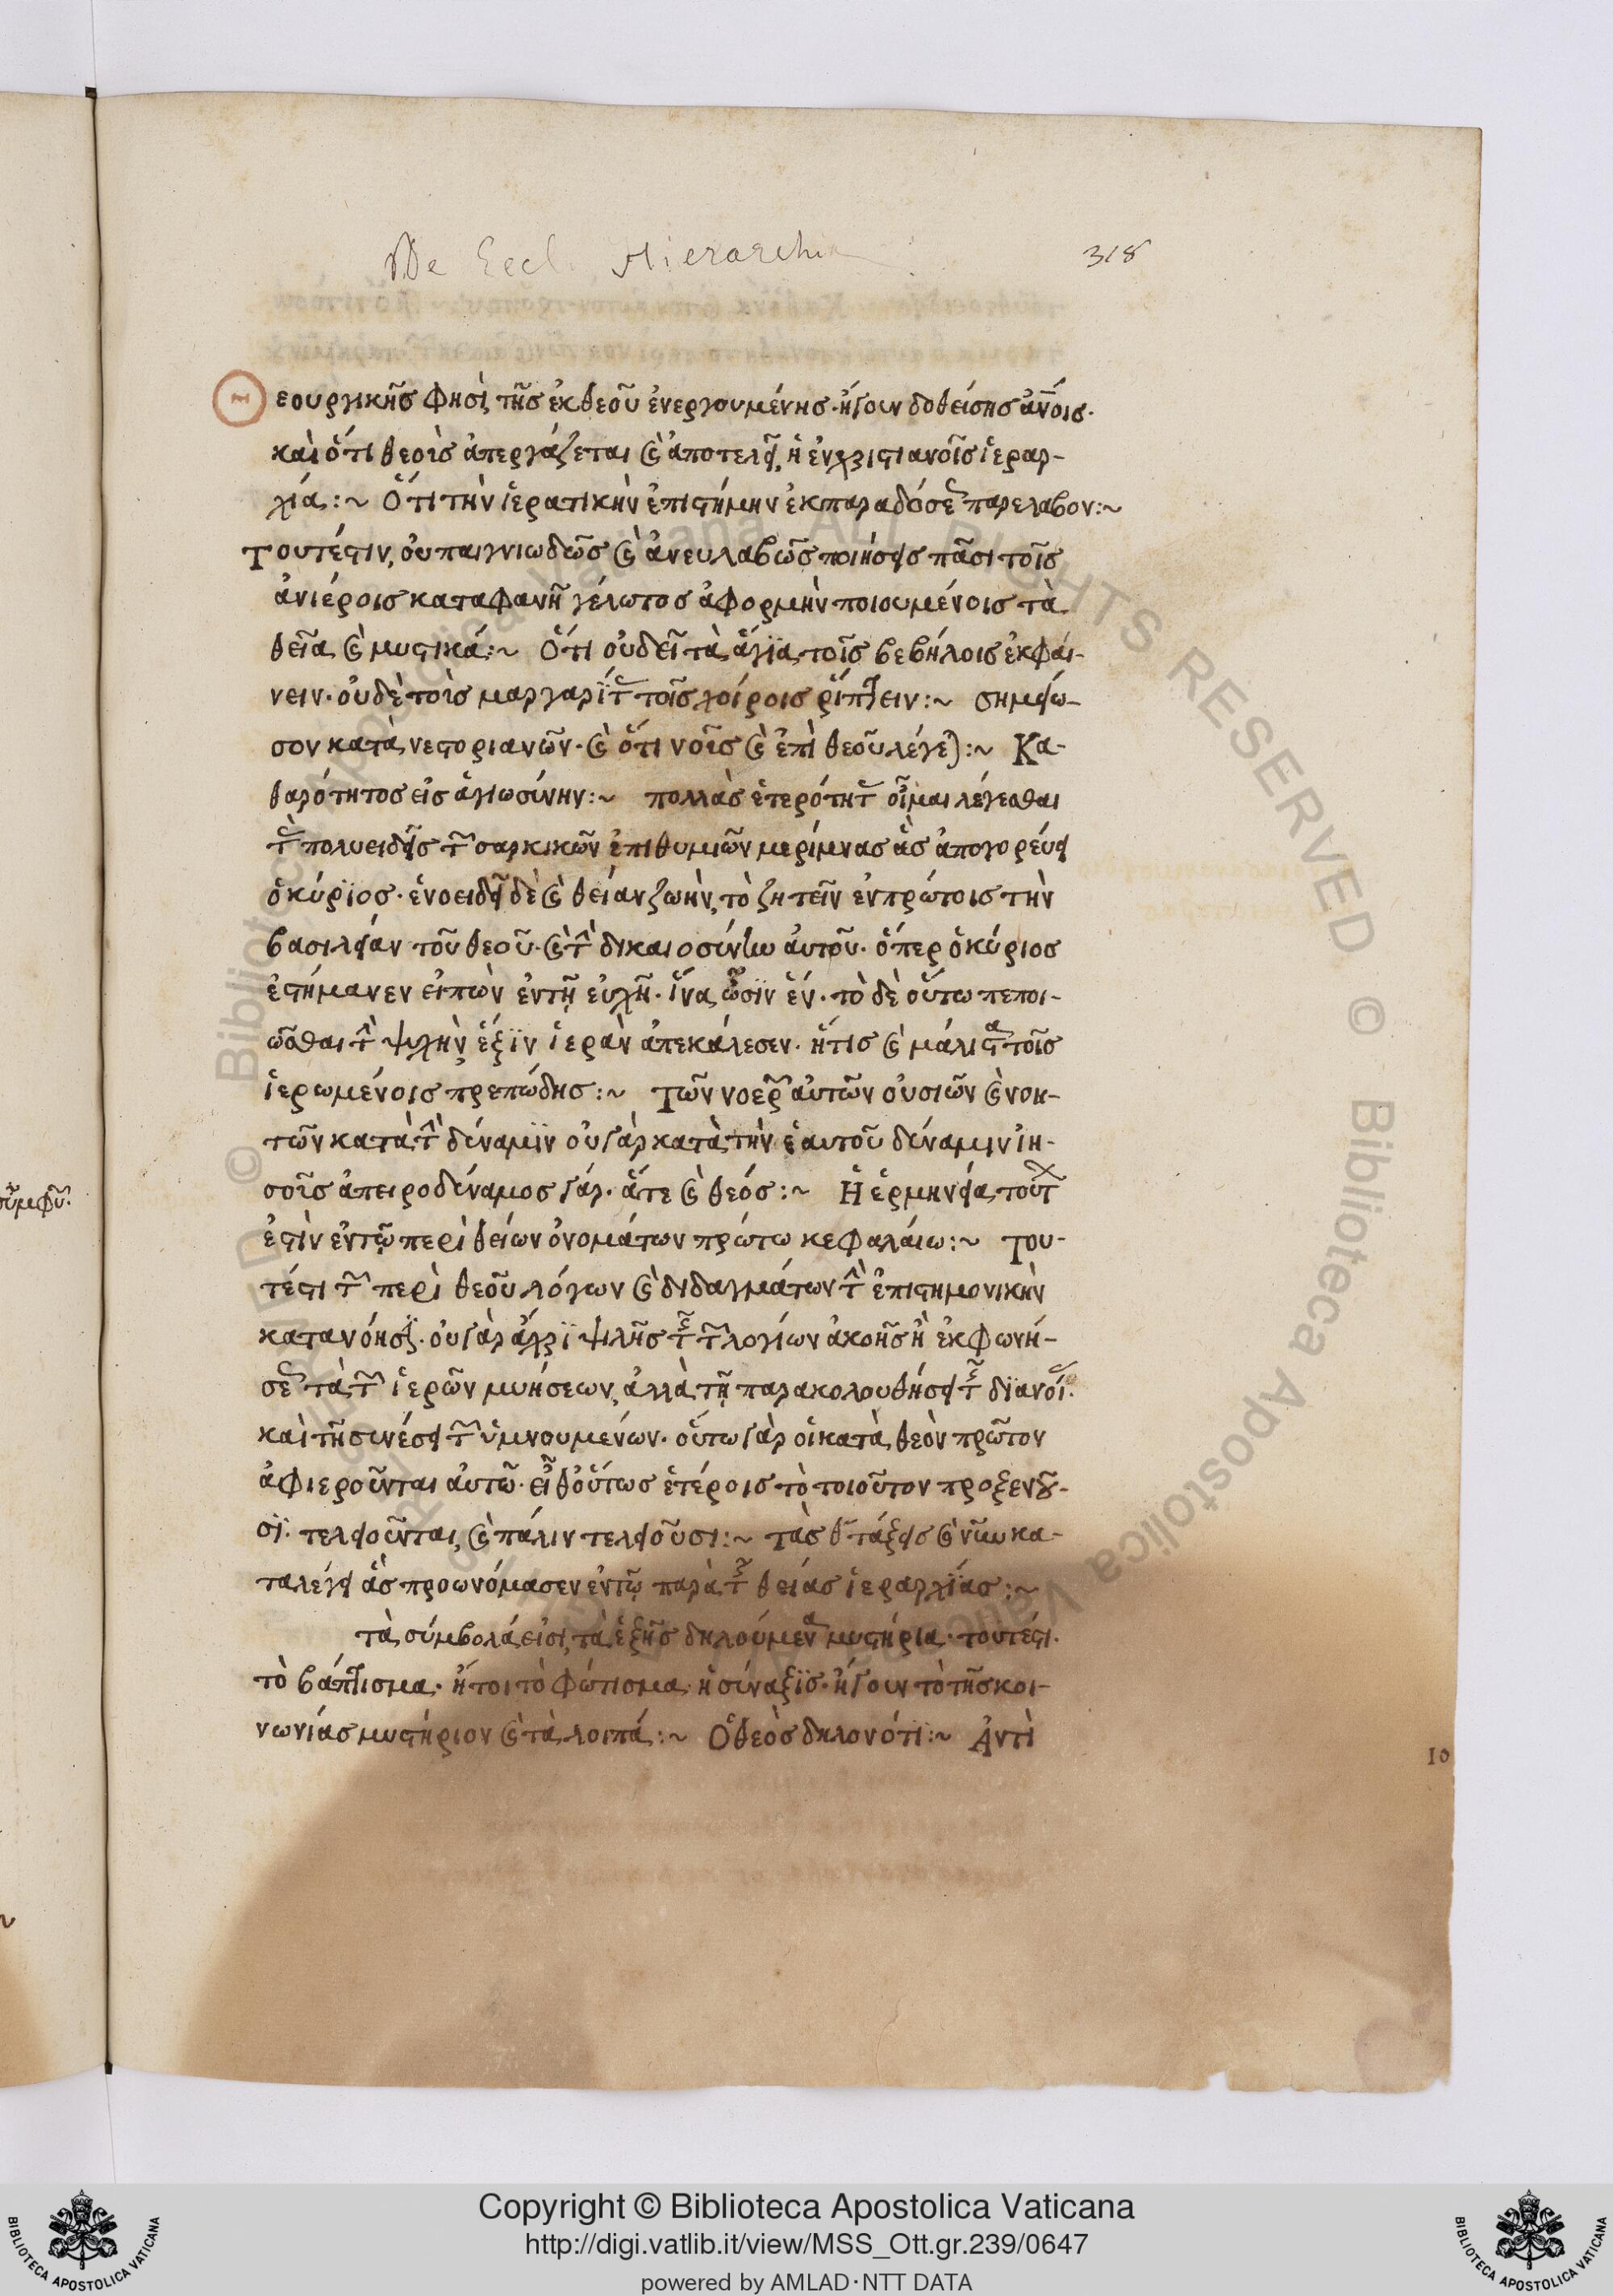 De Eccl. Hierarchia
318
Θεουργικῆς φησὶ, τῆς ἐκ θεοῦ ἐνεργουμένης· ἤγουν δοθείσης ἀνοις·
καὶ ὅτι θεοὺς ἀπεργάζεται καὶ ἀποτελεῖ, ἡ ἐν χριστιανοῖς ἱεραρ-
χία :~ Ὅτι τὴν ἱερατικὴν ἐπιστήμην ἐκ παραδόσεως παρελαβον :~
Τουτέστιν, οὐ παιγνιωδῶς καὶ ἀνευλαβῶς ποιήσεις πᾶσι τοῖς
ἀνιέροις καταφανῆ γέλωτος ἀφορμὴν ποιουμένοις τὰ
θεῖα καὶ μυστικά :~ Ὅτι οὐ δεῖ τὰ ἅγϊα τοῖς βεβήλοις ἐκφαί-
νειν· οὐδὲ τοὺς μαργαρΐτας τοῖς χοίροις ῥίπτειν :~ σημείω-
σον κατὰ νεστοριανῶν· καὶ ὅτι νοῦς καὶ ἐπὶ θεοῦ λέγεται :~ Κα-
θαρότητος εἰς ἁγιωσύνην :~ πολλὰς ἑτερότητας οἶμαι λέγεσθαι
τὰς πολυειδεῖς τῶν σαρκικῶν ἐπιθυμιῶν μερίμνας ἃς ἀπαγορεύει
ὁ κύρϊος· ἑνοειδῆ δὲ καὶ θείαν ζωὴν, τὸ ζητεῖν ἐν πρώτοις τὴν
βασιλείαν τοῦ θεοῦ· καὶ τὴν δικαιοσύνην αὐτοῦ· ὅπερ ὁ κύριος
ἐσήμανεν εἰπὼν ἐν τῇ εὐχῇ· ἵνα ὦσϊν ἕν· τὸ δὲ οὕτω πεποι-
ῶσθαι τὴν ψυχὴν ἕξϊν ἱερὰν ἀπεκάλεσεν· ἥτις καὶ μάλιστα τοῖς
ἱερωμένοις πρεπώδης :~ Τῶν νοερῶν αὐτῶν οὐσιῶν καὶ νοη-
τῶν κατὰ τὴν δύναμϊν οὐ γὰρ κατὰ τὴν ἑαυτοῦ δύναμιν ἰη-
σοῦς ἀπειροδύναμος γάρ· ἅτε καὶ θεός :~ Ἡ ἑρμηνεία τούτου
ἐστὶν ἐν τῷ περὶ θείων ὀνομάτων πρώτω κεφαλαίω :~ Του-
τέστι τῶν περὶ θεοῦ λόγων καὶ διδαγμάτων τὴν ἐπιστημονικὴν
κατανόησϊν· οὐ γὰρ ἄχρϊ ψιλῆς τῆς τῶν λογίων ἀκοῆς ἢ ἐκφωνή-
σεως τὰ τῶν ἱερῶν μυήσεων, ἀλλὰ τῇ παρακολουθήσει τῆς διανοίας·
καὶ τῇ συνέσει τῶν ὑμνουμένων· οὕτω γὰρ οἱ κατὰ θεὸν πρῶτον
ἀφιεροῦνται αὐτῶ· εἶθ' οὕτως ἑτέροις τὸ τοιοῦτον προξενοῦ-
σϊ· τελειοῦνται, καὶ πάλιν τελειοῦσι :~ Τὰς θ τάξεις καὶ νῦν κα-
ταλέγει ἃς προωνόμασεν ἐν τῷ παρὰ τῆς θείας ἱεραρχΐας :~
τὰ σύμβολά εἰσι, τὰ ἑξῆς δηλούμενα μυστήρια· τουτέστι·
τὸ βάπτισμα· ἤτοι τὸ φώτισμα· ἡ σύναξϊς· ἤγουν τὸ τῆς κοι-
νωνίας μυστήριον καὶ τὰ λοιπά :~ Ὁ θεὸς δηλονότϊ :~ Ἀντὶ
10
Copyright © Biblioteca Apostolica Vaticana
http://digi.vatlib.it/view/MSS_Ott.gr.239/0647
powered by AMLAD·NTT DATA
BIBLIOTECA APOSTOLICA VATICANA
BIBLIOTECA APOSTOLICA VATICANA